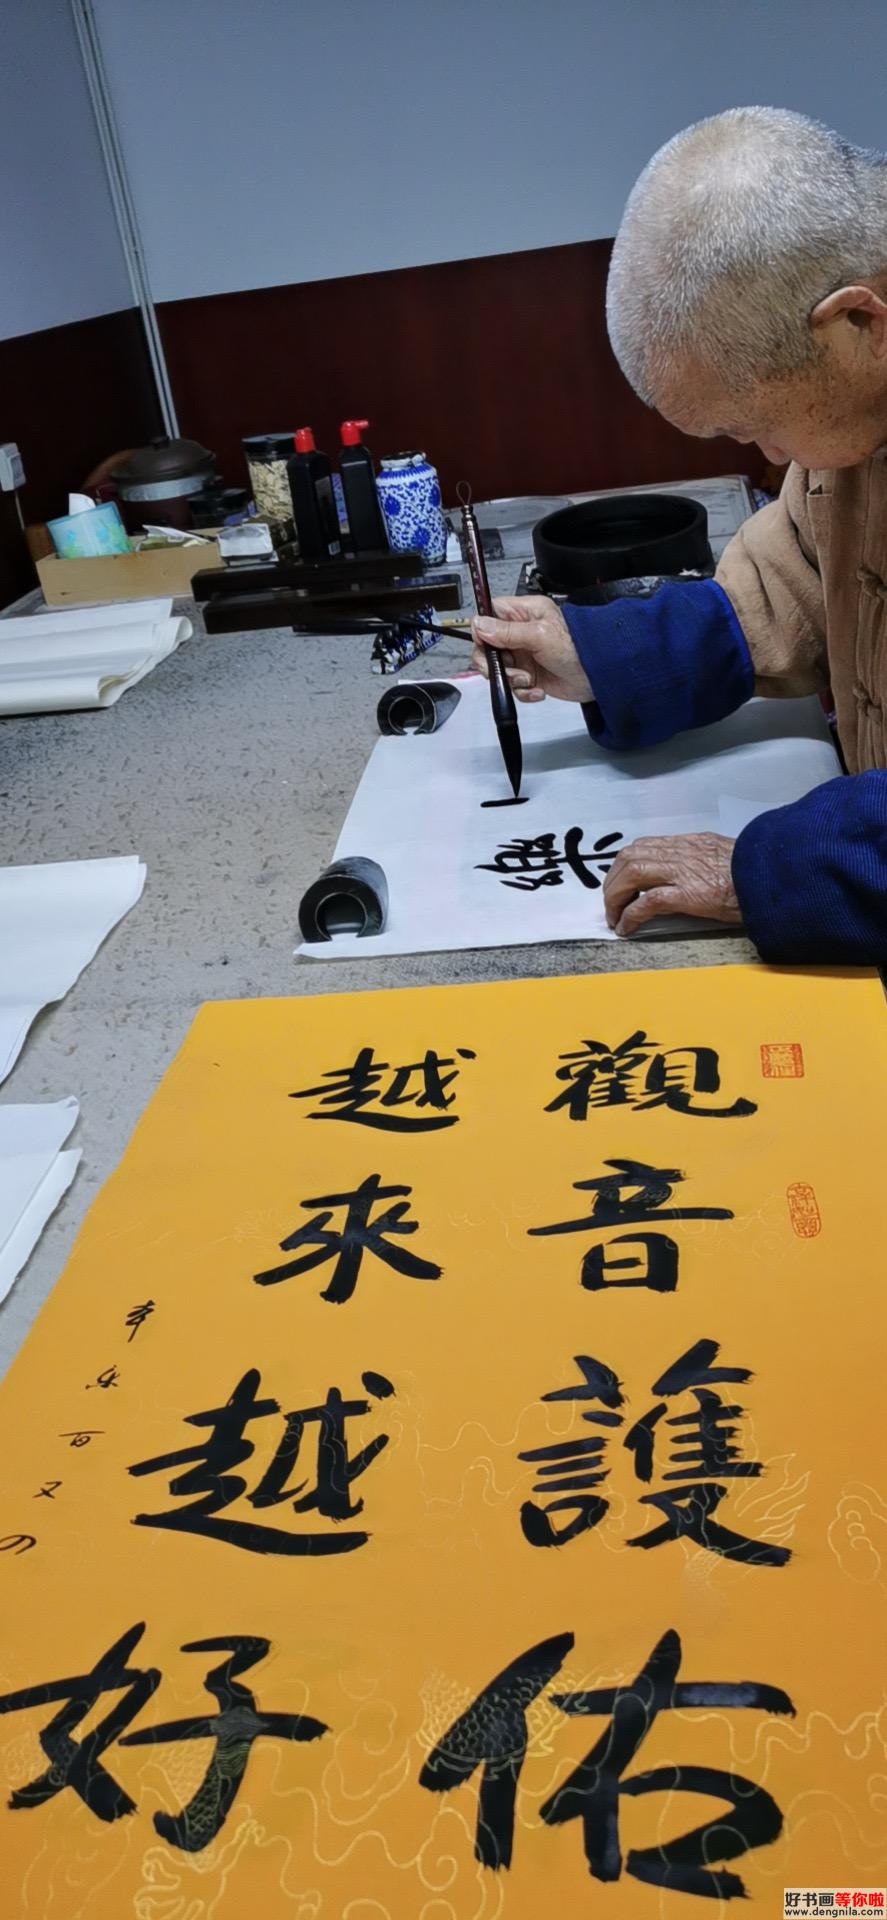 觀音護佑
越來越好
本樂百又
好书画等你啦
www.dengnila.com